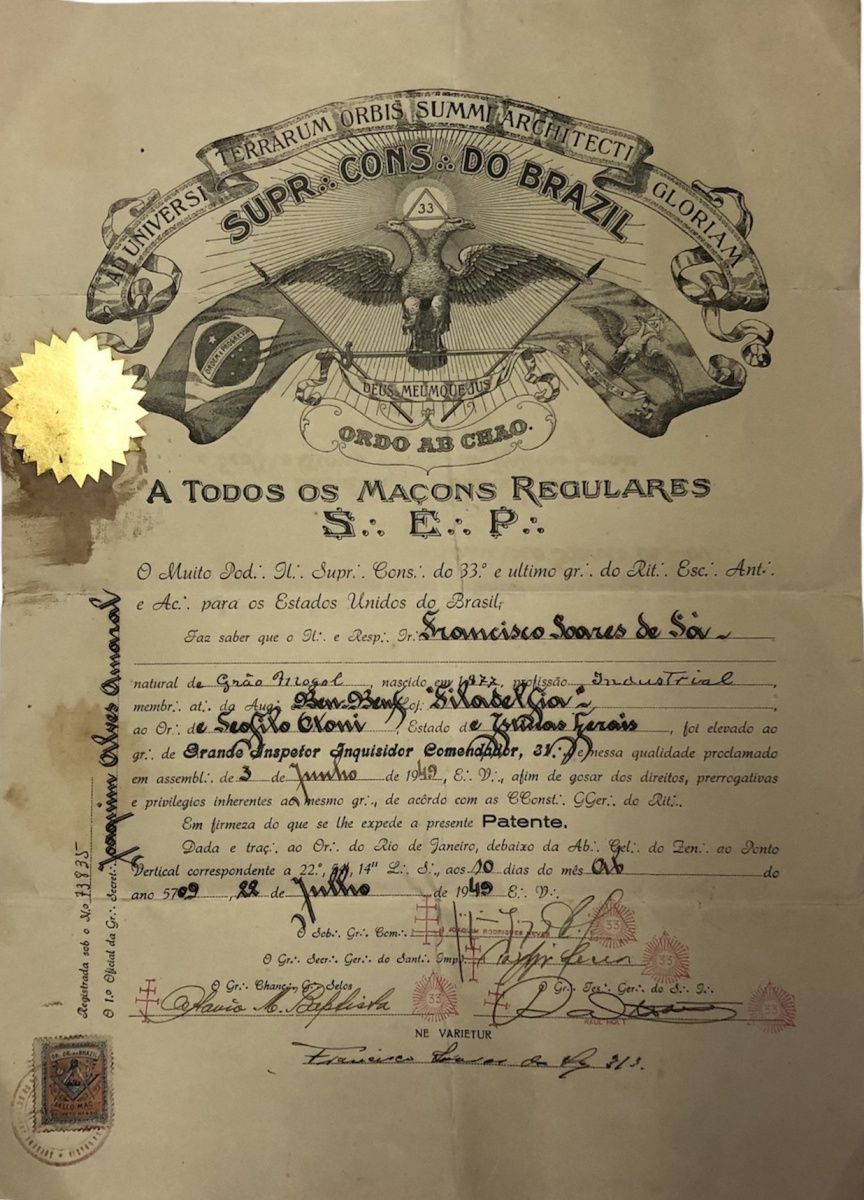 AD UNIVERSI TERRARUM ORBIS SUMMI ARCHITECTI GLORIAM
SUPR∴ CONS∴ DO BRAZIL
33
ORDEM E PROGRESSO
DEUS MEUMQUE JUS
ORDO AB CHAO.
A TODOS OS MAÇONS REGULARES
S∴ E∴ P∴
O Muito Pod∴ Il∴ Supr∴ Cons∴ do 33.º e ultimo gr∴ do Rit∴ Esc∴ Ant∴
e Ac∴ para os Estados Unidos do Brasil,
Faz saber que o Il∴ e Resp∴ Ir∴ Francisco Soares de Sá
natural de Grão Mogol, nascido em 1877, profissão Industrial,
membr∴ at∴ da Aug∴ Ben∴ Benf∴ Loj∴ "Filadelfia"
ao Or∴ de Teofilo Otoni, Estado de Minas Gerais, foi elevado ao
gr∴ de Grande Inspetor Inquisidor Comendador, 31∴, e nessa qualidade proclamado
em assembl∴ de 3 de Junho de 1949, E∴ V∴, afim de gosar dos direitos, prerrogativas
e privilegios inherentes ao mesmo gr∴, de acôrdo com as CConst∴ GGer∴ do Rit∴
Em firmeza do que se lhe expede a presente Patente.
Dada e traç∴ ao Or∴ do Rio de Janeiro, debaixo da Ab∴ Cel∴ do Zen∴ ao Ponto
Vertical correspondente a 22.º, 14" L∴ S∴, aos 10 dias do mês Ab do
ano 5709, 22 de Julho de 1949 E∴ V∴
O Sob∴ Gr∴ Com∴
JOAQUIM RODRIGUES NEVES
33
O Gr∴ Secr∴ Ger∴ do Sant∴ Imp∴
O Gr∴ Chanc∴ Gr∴ Selos
Octavio M. Baptista
33
O Gr∴ Tes∴ Ger∴ do S∴ I∴
33
NE VARIETUR
Francisco Soares de Sá
Registrada sob o N.o 73835
O 1.o Oficial da Gr∴ Secret∴ Joaquim Alves Amaral
GR. OR. DO BRAZIL
SELLO MAÇ